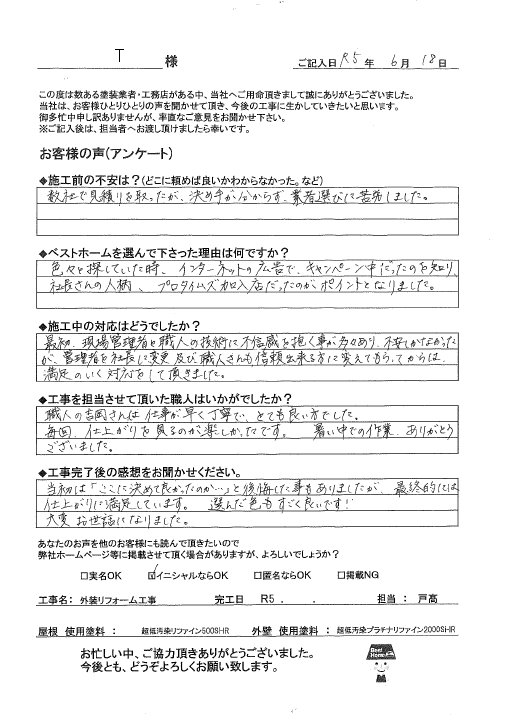 T 様 ご記入日 R5 年 6 月 18 日
この度は数ある塗装業者・工務店がある中、当社へご用命頂きまして誠にありがとうございました。
当社は、お客様ひとりひとりの声を聞かせて頂き、今後の工事に生かしていきたいと思います。
御多忙中申し訳ありませんが、率直なご意見をお聞かせ下さい。
※ご記入後は、担当者へお渡し頂けましたら幸いです。
お客様の声(アンケート)
◆施工前の不安は?(どこに頼めば良いかわからなかった。など)
数社で見積りを取ったが、決め手が分からず、業者選びに苦労しました。
◆ベストホームを選んで下さった理由は何ですか?
色々と探していた時、インターネットの広告で、キャンペーン中だったのを知り、
社長さんの人柄、プロタイムズ加入店だったのが、ポイントとなりました。
◆施工中の対応はどうでしたか?
最初、現場管理者と職人の技術に不信感を抱く事が多々あり、不安しかなかった
が、管理者を社長に変更及び職人さんも信頼出来る方に変えてもらってからは、
満足のいく対応をして頂きました。
◆工事を担当させて頂いた職人はいかがでしたか?
職人の吉岡さんは仕事が早く丁寧で、とても良い方でした。
毎回、仕上がりを見るのが楽しかったです。 暑い中での作業、ありがとう
ございました。
◆工事完了後の感想をお聞かせください。
当初は「ここに決めて良かったのか…」と後悔した事もありましたが、最終的には
仕上がりに満足しています。 選んだ色もすごく良いです!
大変お世話になりました。
あなたのお声を他のお客様にも読んで頂きたいので
弊社ホームページ等に掲載させて頂く場合がありますが、よろしいでしょうか?
□実名OK ☑イニシャルならOK □匿名ならOK □掲載NG
工事名: 外装リフォーム工事 完工日 R5 . . 担当 : 戸高
屋根 使用塗料 : 超低汚染リファイン500SHR 外壁 使用塗料 : 超低汚染プラチナリファイン2000SHR
お忙しい中、ご協力頂きありがとうございました。
今後とも、どうぞよろしくお願い致します。
Best Home